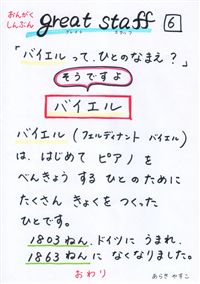 おんがく
しんぶん
great staff 6
グレイト スタッフ
「バイエルって、ひとのなまえ？」
そうですよ
バイエル
バイエル（フェルディナント バイエル）
は、はじめて ピアノ を
べんきょう する ひとの ために
たくさん きょくを つくった
ひとです。
1803ねん、ドイツに うまれ、
1863ねん に なくなりました。
おわり
あらき やすこ